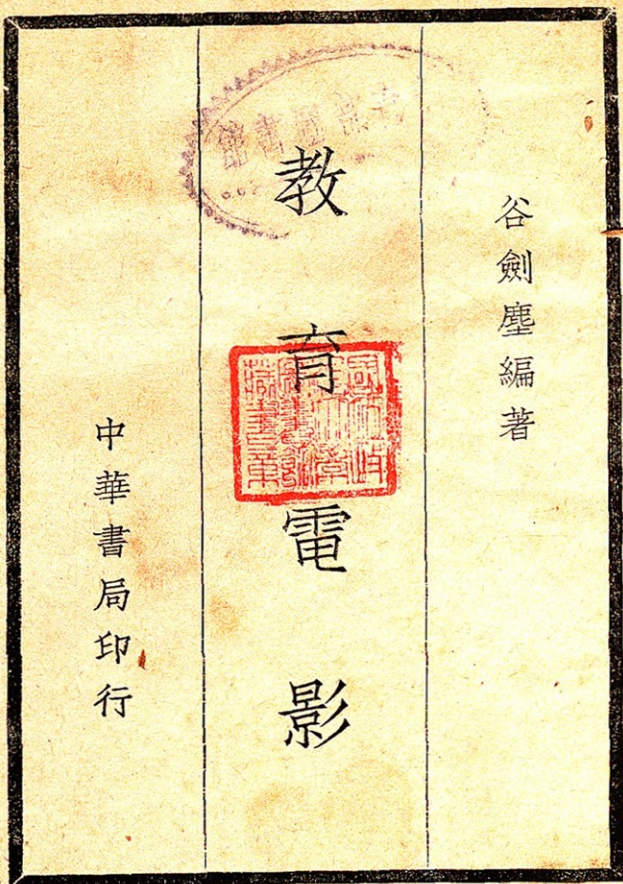 谷劍塵編著
教育電影
中華書局印行